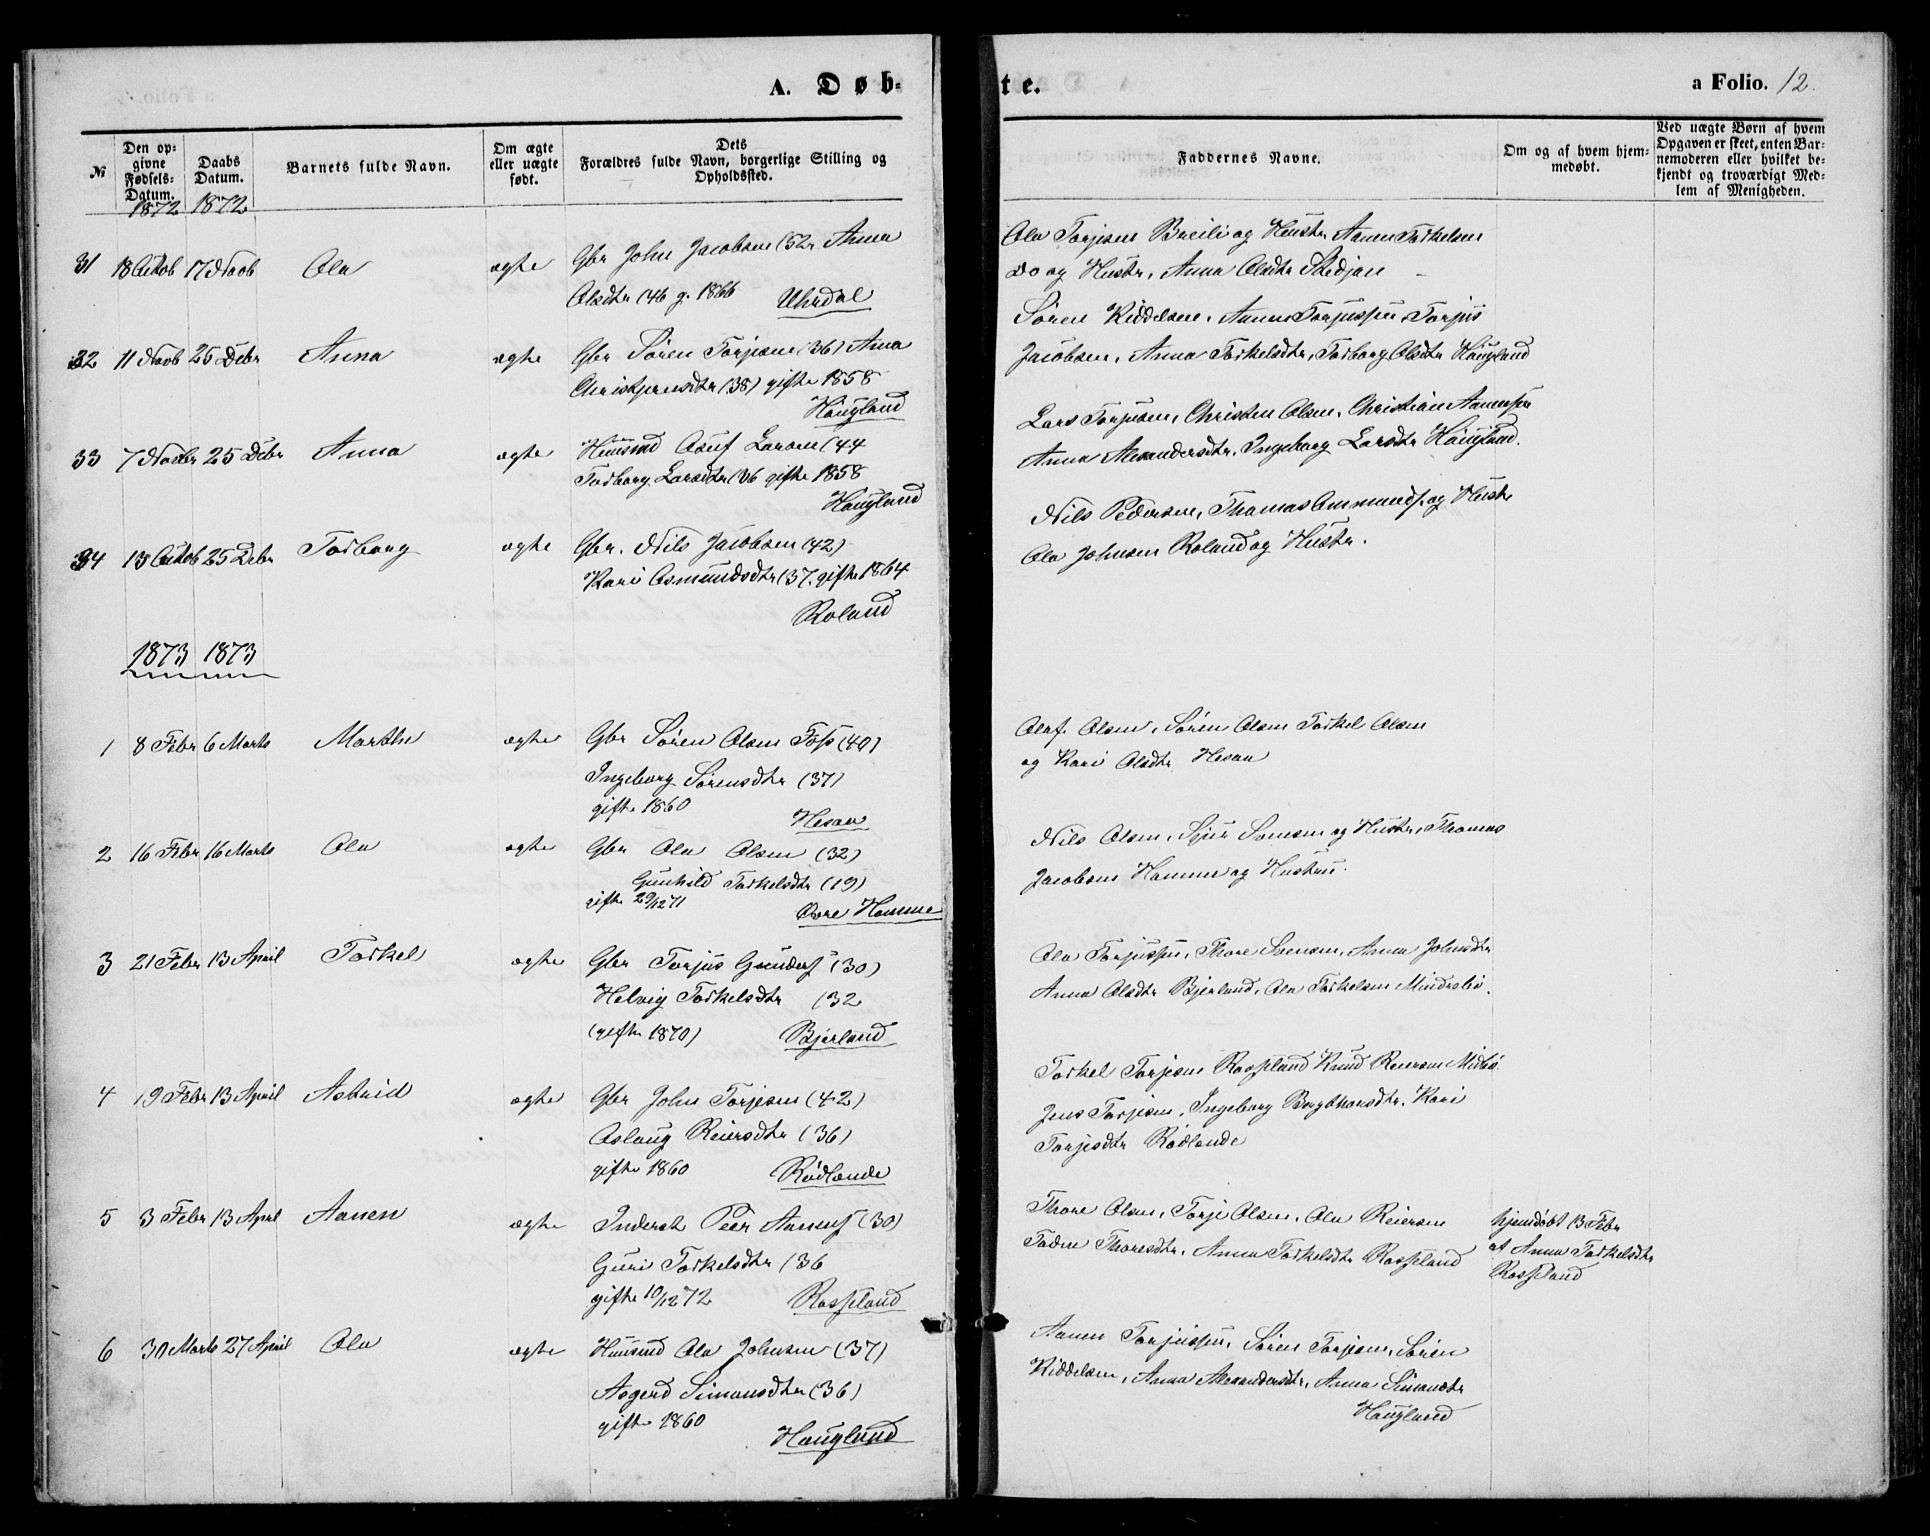 A. Døb-
№
Den op-
givne
Fødsels-
Datum.
1872
Daabs
Datum.
1872
Barnets fulde Navn.
Om ægte
eller uægte
født.
Dets
Forældres fulde Navn, borgerlige Stilling og
Opholdssted.
31 18 Octob 17 Novb Ola ægte Gbr John Jacobsen (52 Anna
Olsdtr (46 g. 1866 Uhrdal
32 11 Novb 25 Debr Anna ægte Gbr Søren Torjesen (36) Anna
(38) gifte 1858
Haugland
33 7 Novbr 25 Debr Anna ægte Huusmd Asuf Larsen (44
Torborg Larsdtr (36 gifte 1858
Haugland
34 13 Octob 25 Debr Torborg ægte Gbr. Nils Jacobsen (42)
Kari Osmundsdtr (37. gifte 1864
Roland
1873 1873
1 8 Febr 6 Marts Marthe ægte Gbr Søren Olsen Foss (40)
Ingeborg Sørensdtr (37)
gifte 1860
Hesaa
2 16 Febr 16 Marts Ola ægte Gbr Ola Olsen (32)
Gunhild Torkelsdtr (19)
gifte 29/12 71 Øvre Homme
3 21 Febr 13 April Torkel ægte Gbr Torjus Gunders (30)
Helvig Torkelsdtr (32
(gifte 1870) Bjerland
4 19 Febr 13 April Astrid ægte Gbr John Torjesen (42)
Aslaug Reiersdtr (36)
gifte 1860 Rødlande
5 3 Febr 13 April Aanen ægte Inderst Peer Aanens (30)
Guri Torkelsdtr (36
gifte 10/12 72 Rosseland
6 30 Marts 27 April Ola ægte Huusmd Ola Johnsen (37)
Asgerd Simonsdtr (36)
gifte 1860
Haugland
te.
a Folio. 12.
Faddernes Navne.
Om og af hvem hjem-
medøbt.
Ved uægte Børn af hvem
Opgaven er skeet, enten Bar-
nemoderen eller hvilket be-
kjendt og troværdigt Med-
lem af Menigheden.
Ola Torjesen Breili og Hustr Aanen Torkelsen
Do og Hustr, Anna Olsdtr
Søren Kiddelsen, Aanen Torjussen Torjus
Jacobsen, Anna Torkelsdtr, Torborg Olsdtr Haugland
Lars Torjusen, Christen Olsen, Christian Aanensen
Anna Alexandersdtr, Ingeborg Larsdtr Haugland.
Nils Pedersen, Thomas og Hustr
Ola Johnsen Roland og Hustr.
Olaf Olsen, Søren Olsen Torkel Olsen
og Kari Olsdtr Hesaa
Nils Olsen, Sjur og Hustr, Thomas
Jacobsen Homme og Hustru.
Ola Torjussen, Thore Svensen, Anna Johnsdtr
Anna Olsdtr Bjerland, Ola Torkelsen
Torkel Torjesen Rosseland Knud Reiersen Midbø
Jens Torjesen, Ingeborg Bergthorsdtr, Kari
Torjesdtr Rødlande
Thore Olsen, Torje Olsen, Ola Reiersen
Thoresdtr, Anna Torkelsdtr Rosseland
hjemdøbt 13 Febr
af Anna Torkelsdtr
Rosseland
Aanen Torjussen, Søren Torjesen, Søren
Kiddelsen, Anna Alexandersdtr, Anna Simonsdtr
Haugland